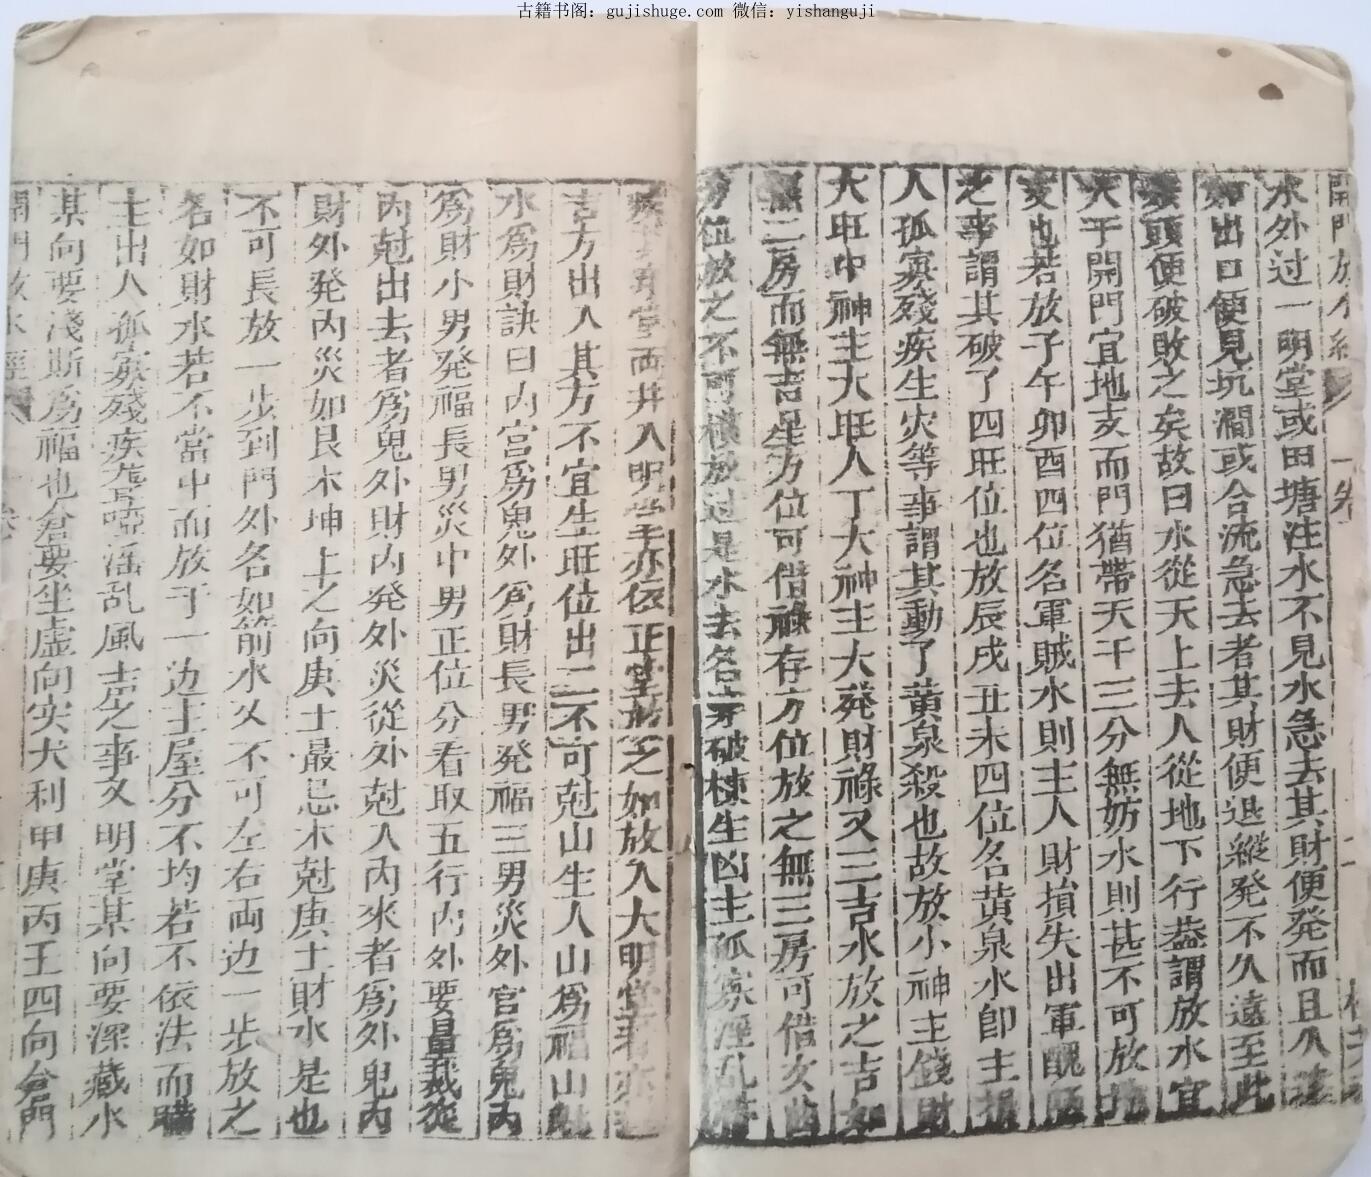 古籍书阁：gujishuge.com 微信：yishanguji
開門放水經 一卷
水外过一明堂或田塘注水不見水急去其財便発而且久遠
如出口便見坑澗或合流急去者其財便退縱発不久遠至此
頭便破敗之矣故曰水從天上去人從地下行盖謂放水宜
天干開門宜地支而門猶帶天干三分無妨水則甚不可放地
支也若放子午卯酉四位名軍賊水則主人財損失出軍醜
之事謂其破了四旺位也放辰戌丑未四位名黄泉水卽主損
人孤寡殘疾生灾等事謂其動了黄泉殺也故放小神主錢財
大旺中神主大旺人丁大神主大発財祿又三吉水放之吉如
無二房而無吉星方位可借祿存方位放之無三房可借文曲
方位放之不可橫放过是水去名穿破棟生凶主孤寡淫乱
堂両井入明堂亦依正堂放之如放入大明堂者亦
吉方出入其方不宜生旺位出二不可尅山生人山為福山尅
水爲財訣曰内宫爲鬼外爲財長男発福三男災外宫爲鬼内
爲財小男発福長男災中男正位分看取五行内外要量裁從
内尅出去者爲鬼外財内発外災從外尅入内來者爲外鬼内
財外発内災如艮木坤上之向庚土最忌木尅庚土財水是也
不可長放一步到門外名如箭水又不可左右両边一步放之
名如財水若不當中而放于一边主屋分不均若不依法而
主出人孤寡殘疾聾啞滛乱風声之事又明堂某向要深藏水
某向要淺斯爲福也倉要坐虚向实大利甲庚丙壬四向倉門
開門放水經